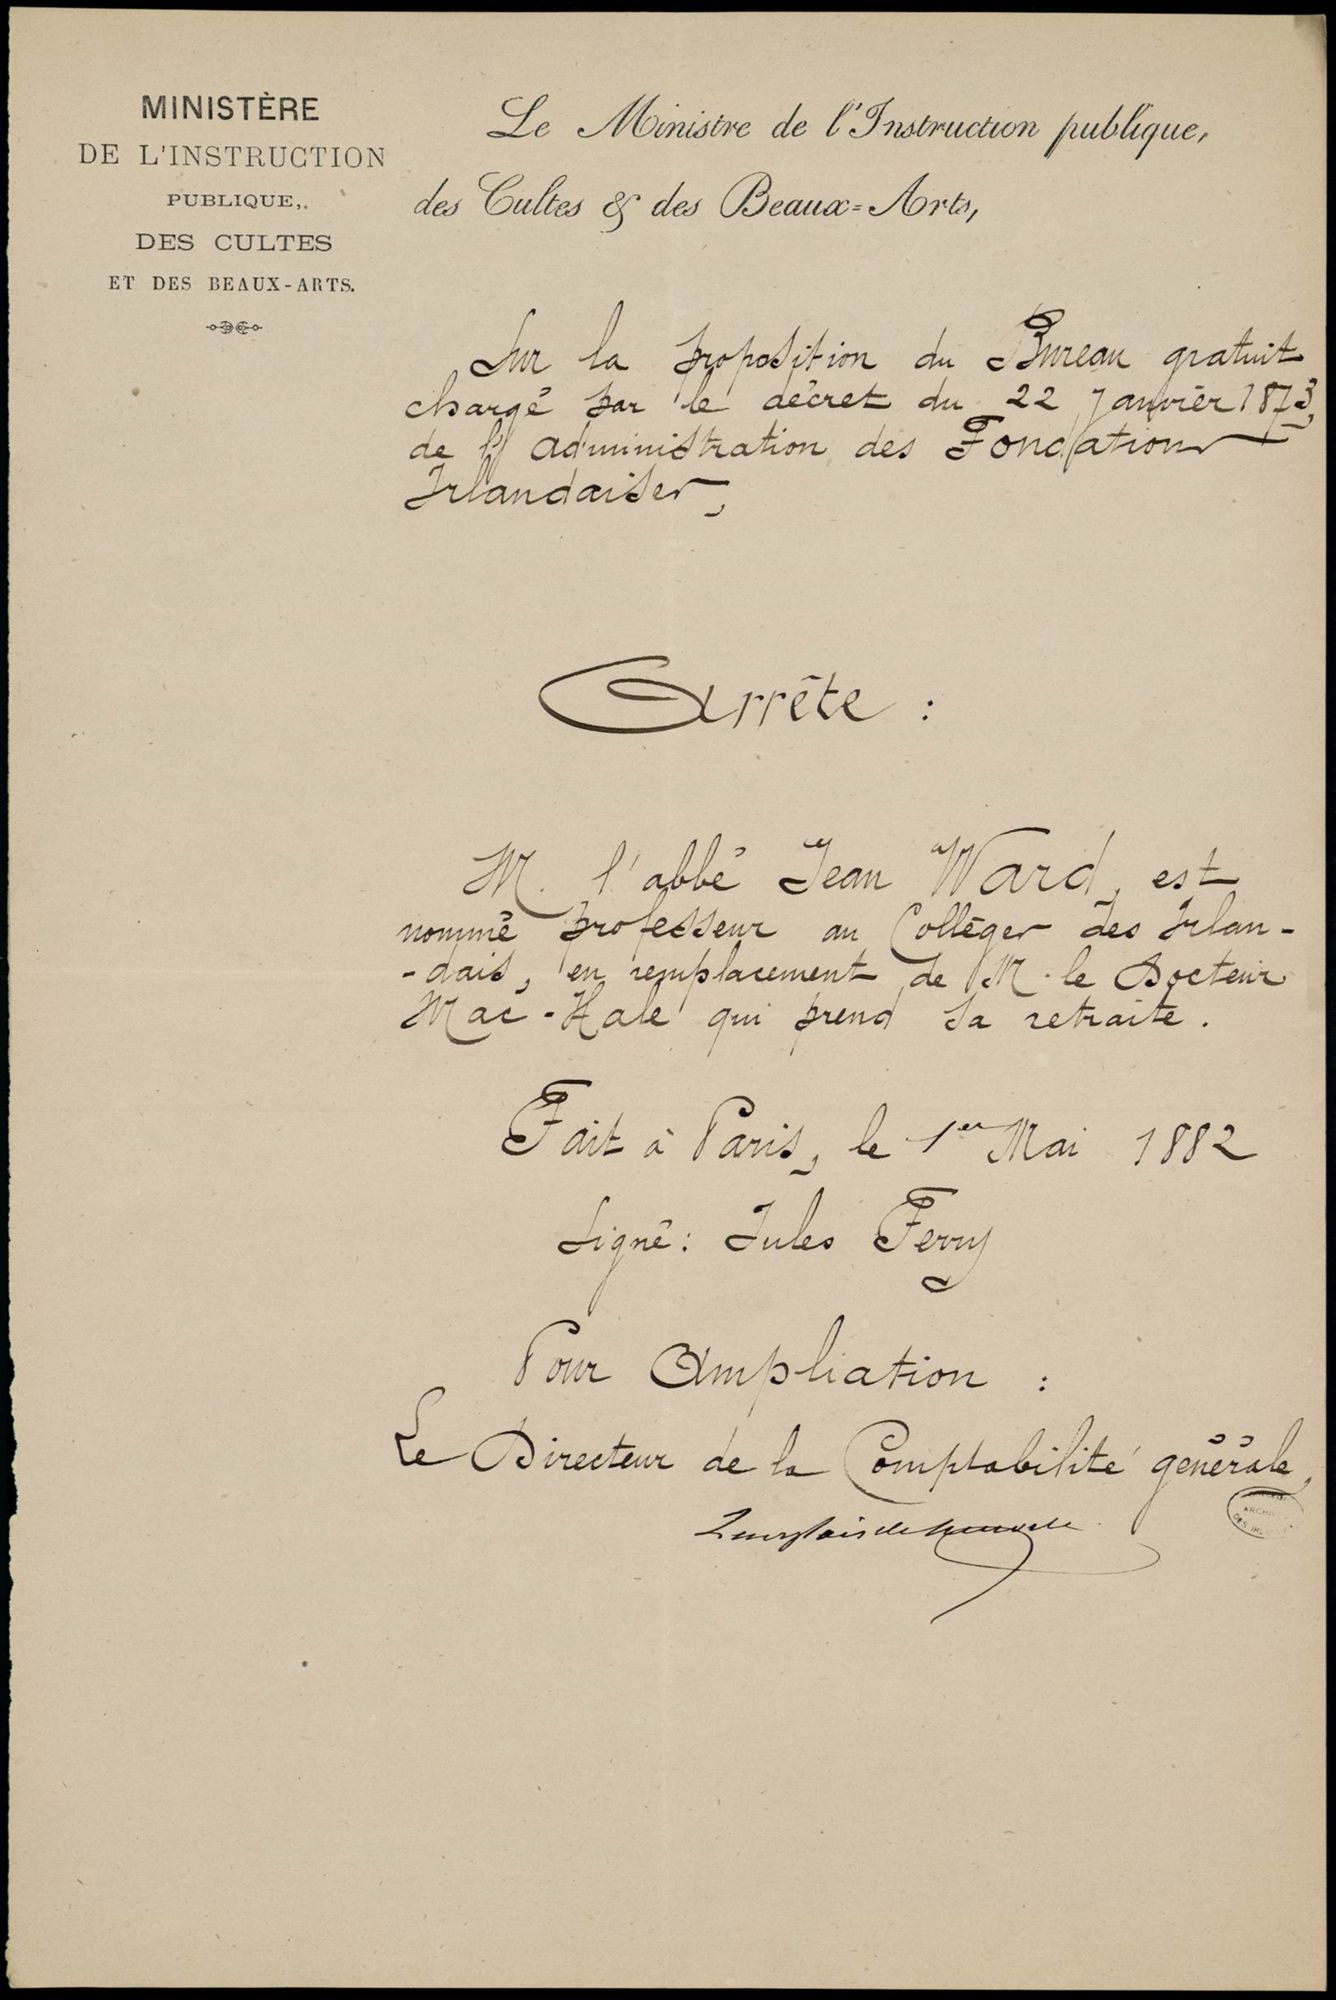 MINISTÈRE
DE L'INSTRUCTION
PUBLIQUE,
DES CULTES
ET DES BEAUX-ARTS.
Le Ministre de l'Instruction publique,
des Cultes & des Beaux-Arts,
Sur la proposition du Bureau gratuit
chargé par le décret du 22 Janvier 1873,
de l'administration des Fondations
Irlandaises,
Arrête :
M. l'abbé Jean Ward, est
nommé professeur au Collège des Irlan-
-dais, en remplacement de M. le Docteur
Mac-Hale qui prend sa retraite.
Fait à Paris, le 1er Mai 1882
Signé : Jules Ferry
Pour Ampliation :
Le Directeur de la Comptabilité générale,